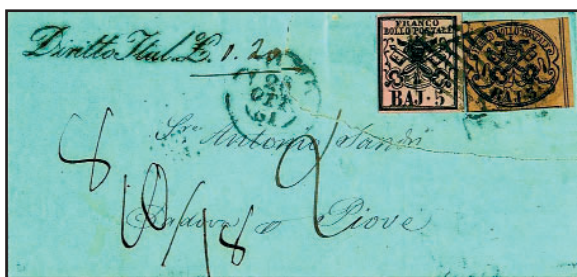 Diritto Ital. £. 1. 20
FRANCO
BOLLO POSTALE
BAJ. 5
BAJ. 3
26
OTT
61
Sr. Antonio Sandri
8 10/18 2
Padova o Piove